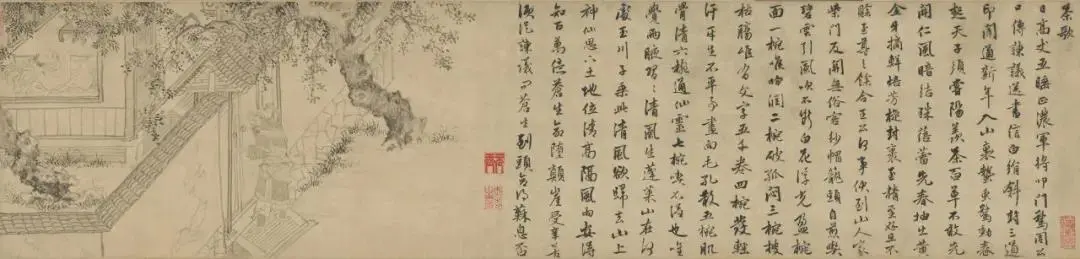 茶歌
日高丈五睡正濃軍將叩門驚周公
口傳諫議送書信白絹斜封三道
印聞道新年入山裏蟄蟲驚動春
起天子須嘗陽羨茶百草不敢先
開仁風暗結珠蓓蕾先春抽出黃
金牙摘鮮焙芳旋封裹至精至好且不
至尊之餘合王公何事便到山人家
柴門反關無俗客紗帽龍頭自煎喫
碧雲引風吹不斷白花浮光盈椀
面一椀喉吻潤二椀破孤悶三椀搜
枯腸唯有文字五千卷四椀發輕
汗平生不平事盡向毛孔散五椀肌
骨清六椀通仙靈七椀喫不得也唯
覺兩腋習習清風生蓬萊山在何
處玉川子乘此清風欲歸去山上
神仙司下土地位清高隔風雨安得
知百萬億蒼生命墮顛崖受辛苦
須從諫議問蒼生到頭合得蘇息否